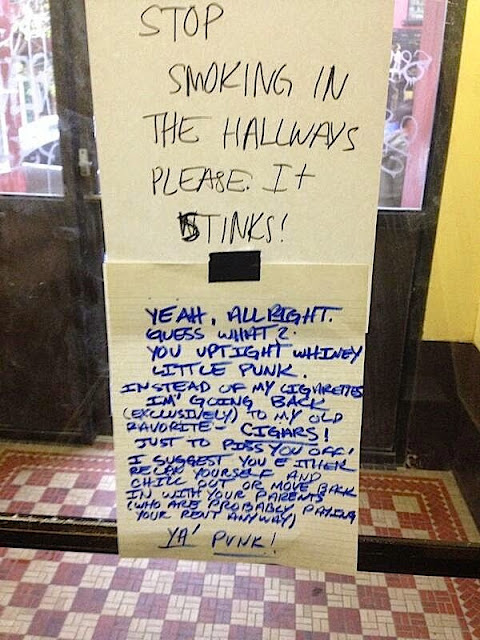 STOP
SMOKING IN
THE HALLWAYS
PLEASE. It
STINKS!
YEAH, ALLRIGHT.
GUESS WHAT?
YOU UPTIGHT WHINEY
LITTLE PUNK.
INSTEAD OF MY CIGARETTES
IM' GOING BACK
(EXCLUSIVELY) TO MY OLD
FAVORITE- CIGARS!
JUST TO PISS YOU OFF!
I SUGGEST YOU EITHER
YOURSELF AND
CHILL OUT OR MOVE BACK
IN WITH YOUR PARENTS
(WHO ARE PROBABLY PAYING
YOUR RENT ANYWAY)
YA' PUNK!